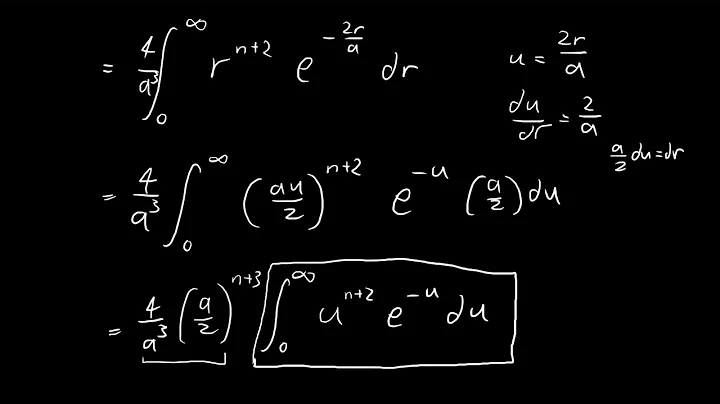 = 4/a³ ∫₀^∞ r^{n+2} e^{-2r/a} dr
u = 2r/a
du/dr = 2/a
a/2 du = dr
= 4/a³ ∫₀^∞ (au/2)^{n+2} e^{-u} (a/2) du
= 4/a³ (a/2)^{n+3} ∫₀^∞ u^{n+2} e^{-u} du